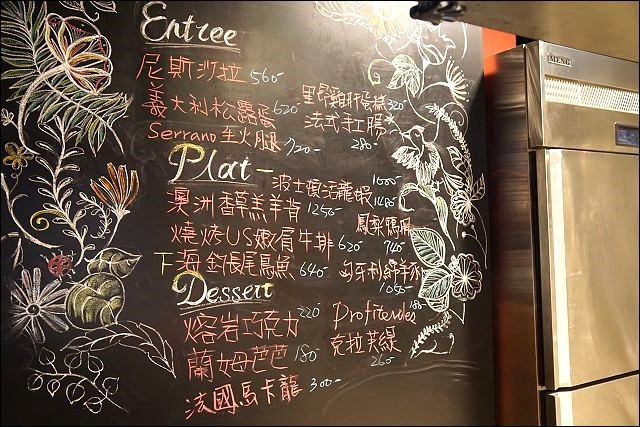 Entree
尼斯沙拉 560-
義大利松露蛋 620 里昂雞肝蛋糕 320
Serrano 生火腿 720- 法式手工腸 280-
Plat - 波士頓活龍蝦 1000-
澳洲香草羔羊背 1250- 1480
燒烤US嫩肩牛排 620 鳳梨鴨胸 740
下海釣長尾鳥魚 640- 匈牙利綿羊豬 1050-
Dessert
熔岩巧克力 220 Profiteroles 180
蘭姆芭芭 180 克拉芙緹 260-
法國馬卡龍 300-
MENG